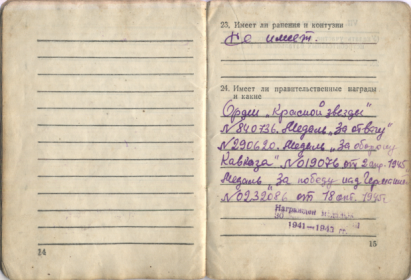 14
23. Имеет ли ранения и контузии
Не имеет.
24. Имеет ли правительственные награды
и какие
Орден „Красной звезды"
№840736. Медаль „За отвагу"
№290620. Медаль „За оборону
Кавказа" №019076 от 1945
Медаль „За победу над Германией
№0232086 от 18 окт. 1945г.
Награжден
1941—1945 гг.
15